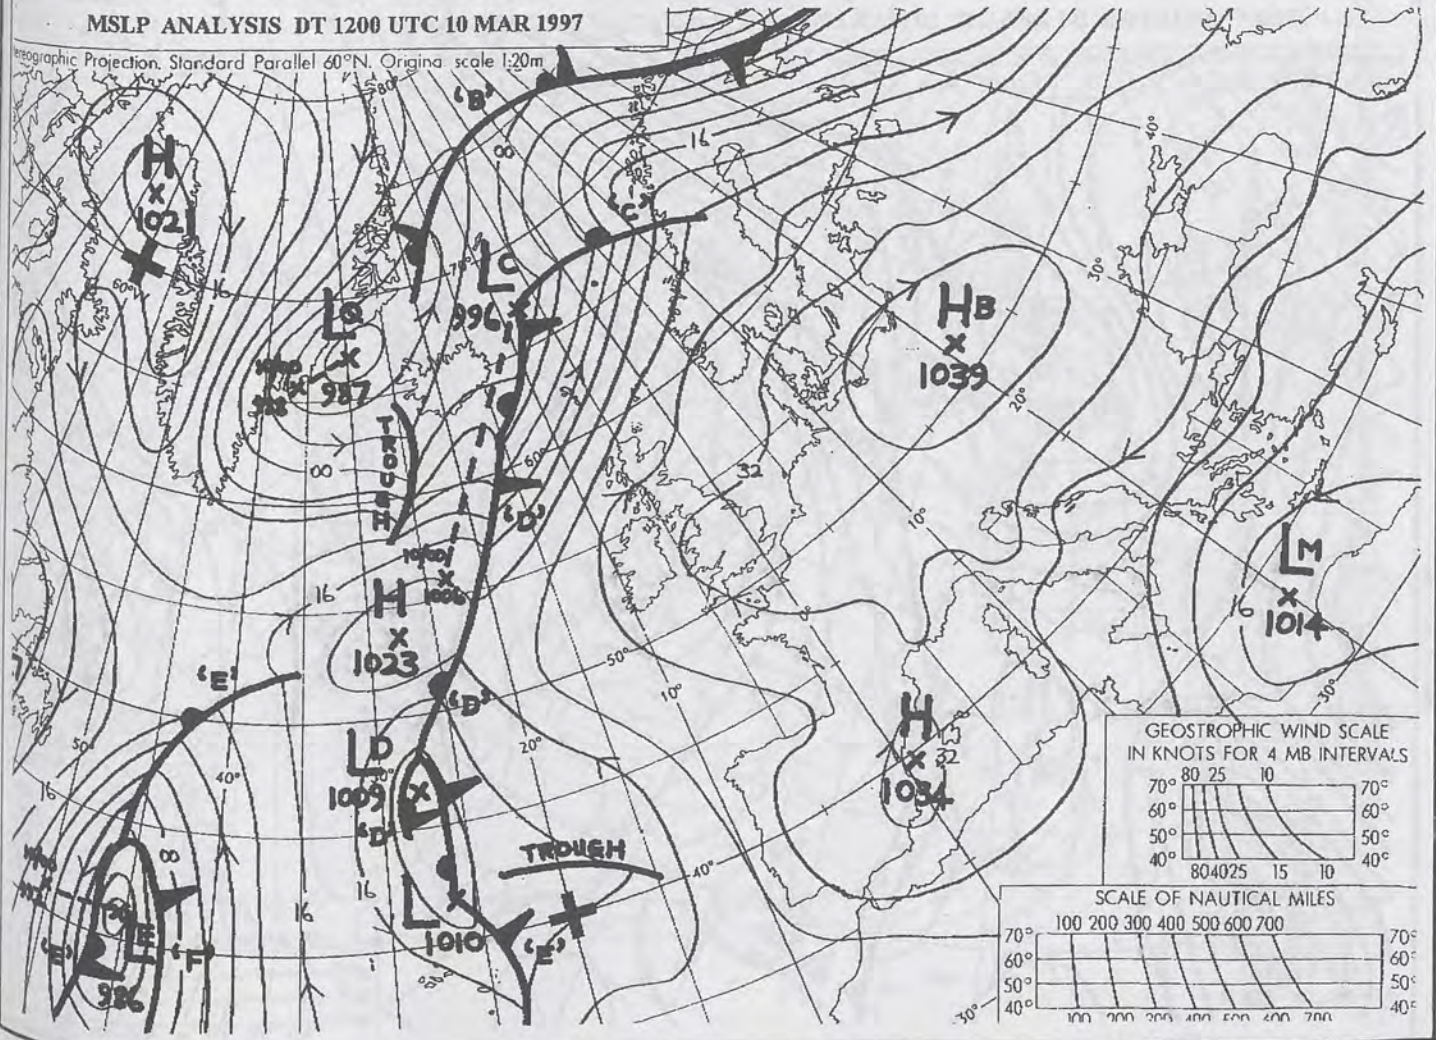 MSLP ANALYSIS DT 1200 UTC 10 MAR 1997
ereographic Projection. Standard Parallel 60°N. Origina scale 1:20m
80°
'B'
16
00
40°
H
1021
'C'
60°
16
70°
LC
996
L
987
HB
1039
30°
20°
TROUGH
00
60°
32
'D'
10°
LM
1014
16
16
H
1023
1006
50°
10°
'E'
'D'
30°
LD
1009
20°
H
32
1034
50°
40°
16
'D'
00
TROUGH
40°
16
16
L
1010
'E'
'E'
LE
'F'
986
30°
GEOSTROPHIC WIND SCALE
IN KNOTS FOR 4 MB INTERVALS
80 25 10
70° 70°
60° 60°
50° 50°
40° 40°
80 40 25 15 10
SCALE OF NAUTICAL MILES
100 200 300 400 500 600 700
70° 70°
60° 60°
50° 50°
40° 40°
100 200 300 400 500 600 700